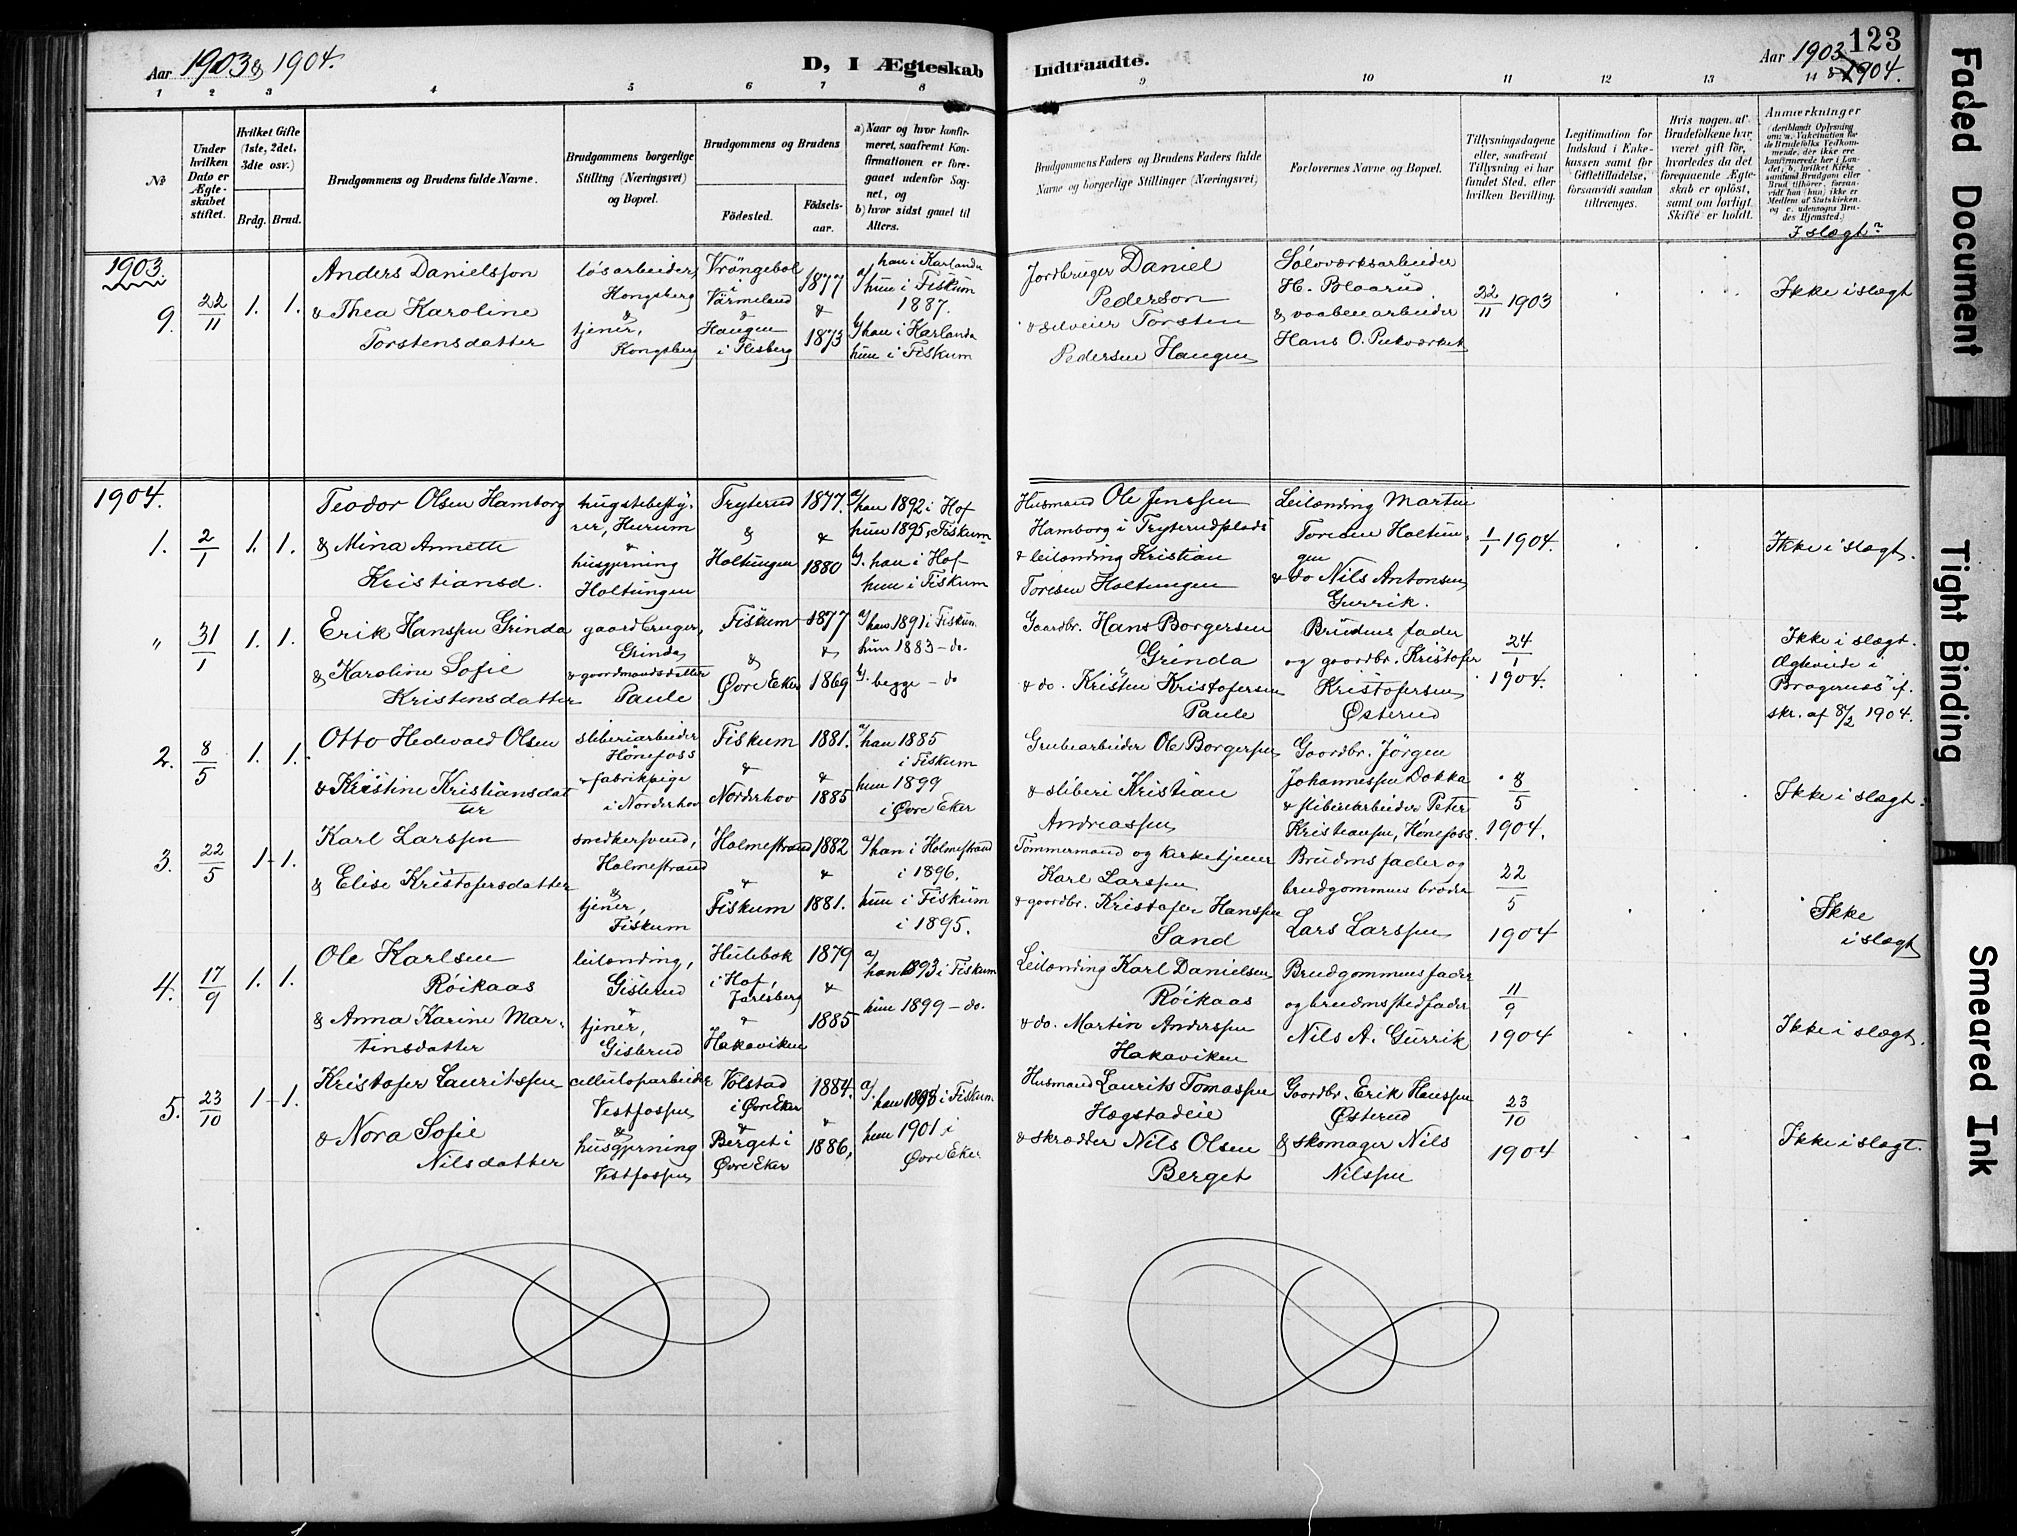 Aar 1903 & 1904.
D, I Ægteskab
Indtraadte.
Aar 1903 & 1904.
123
1 2 3 4 5 6 7 8 9 10 11 12 13 14
No
Under hvilken Dato er Ægteskabet stiftet.
Hvilket Gifte (1ste, 2det, 3dte osv.)
Brdg. Brud.
Brudgommens og Brudens fulde Navne.
Brudgommens borgerlige Stilling (Næringsvei) og Bopæl.
Brudgommens og Brudens
Födested.
Födsels-aar.
a) Naar og hvor konfirmeret, saafremt Konfirmationen er foregaaet udenfor Sognet, og
b) hvor sidst gaaet til Alters.
Brudgommens Faders og Brudens Faders fulde Navne og borgerlige Stillinger (Næringsvei)
Forlovernes Navne og Bopæl.
Tillysningsdagene eller, saafremt Tillysning ei har fundet Sted, efter hvilken Bevilling.
Legitimation for Indskud i Enkekassen samt for Giftetilladelse, forsaavidt saadan tiltrænges.
Hvis nogen af Brudefolkene har været gift för, hvorledes da det foregaaende Ægteskab er oplöst, samt om lovligt Skifte er holdt.
Anmærkninger
(deriblandt Oplysning om: a. Vakcination for de Brudefolks Vedkommende, der ikke ere konfirmerede her i Landet; b. hvilket Kirkesamfund Brudgom eller Brud tilhörer, forsaavidt han (hun) ikke er Medlem af Statskirken, og c. udensogns Brudes Hjemsted.)
I slægt?
1903.
9. 22/11 1. 1.
Anders Danielsson
& Thea Karoline
Torstensdatter
løsarbeider,
Kongsberg
&
tjener,
Kongsberg
Vrängebol
i
Värmeland
&
Haugen
i Flesberg
1877
&
1873
a/ han i Karlanda
hun i Fiskum
1887.
b/ han i Karlanda
hun i Fiskum
Jordbruger Daniel
Pederson
& selveier Torsten
Pedersen Haugen
Sølvværksarbeider
H. Blaarud
& vaabenarbeider
Hans O. Pukværket
22/11 1903
Ikke i slægt
1904.
1. 2/1 1. 1.
Teodor Olsen Hamborg
& Mina Annette
Kristiansd.
hugstbesty-
rer, Hurum
&
husgjerning
Holtungen
Tryterud
&
Holtungen
1877.
&
1880
a/ han 1892 i Hof
hun 1895 i Fiskum
b/. han i Hof
hun i Fiskum
Husmand Ole Jenssen
Hamborg i Tryterudplads
& leilænding Kristian
Toresen Holtungen
Leilænding Martin
Toresen Holtun-
gen
& do Nils Antonsen,
Gurrik.
1/1 1904.
Ikke i slægt.
" 31/1 1. 1.
Erik Hanssen Grinda
& Karoline Sofie
Kristensdatter
gaardbruger,
Grinda
& gaardmandsdatter
Paule
Fiskum
&
Øvre Eker
1877
&
1869
a/ han 1891 i Fiskum
hun 1883 – do.
b/. begge – do
Gaardbr. Hans Borgersen
Grinda
& do. Kristen Kristofersen
Paule
Brudens fader
og gaardbr. Kristofer
Kristofersen
Østerud
24/1
1904.
Ikke i slægt.
Ægteviede i
Bragernes if.
skr. af 8/2 1904.
2. 8/5 1. 1.
Otto Hedevald Olsen
& Kristine Kristiansdat-
ter
sliberiarbeider
Hönefoss
& fabrikpige
i Norderhov
Fiskum
&
Norderhov
1881.
&
1885
a/ han 1885
i Fiskum
hun 1899
i Øvre Eker
Grubearbeider Ole Borgersen
& sliberi Kristian
Andreassen
Gaardbr. Jörgen
Johannessen Dokka
& sliberiarbeider Peter
Kristiansen, Hönefoss.
8/5
1904.
Ikke i slægt.
3. 22/5 1. 1.
Karl Larssen
& Elise Kristofersdatter
snedkersvend,
Holmestrand
&
tjener,
Fiskum
Holmestrand
&
Fiskum
1882
&
1881.
a/ han i Holmestrand
i 1896.
hun i Fiskum
i 1895.
Tömmermand og kirketjener
Karl Larssen
& gaardbr. Kristofer Hanssen
Sand
Brudens fader og
brudgommens broder
Lars Larssen
22/5
1904
Ikke
i slægt
4. 17/9 1. 1.
Ole Karlsen
Røikaas
& Anna Karine Mar-
tinsdatter
leilænding,
Gislerud
&
tjener,
Gislerud
Hulebak
i Hof,
Jarlsberg
&
Hakaviken
1879
&
1885
a/
han 1893 i Fiskum
hun 1899 – do.
Leilænding Karl Danielsen
Røikaas
& do. Martin Anderssen
Hakaviken
Brudgommens fader
og brudens stedfader
Nils A. Gurrik
11/9
1904
Ikke i slægt.
5. 23/10 1. 1.
Kristofer Lauritssen
& Nora Sofie
Nilsdatter
celluloparbeider
Vestfossen
&
husgjerning
Vestfossen
Volstad
i Øvre Eker
&
Berget i
Øvre Eker
1884.
&
1886,
a/.
han 1898 i Fiskum
hun 1901 i
Øvre Eker
Husmand Laurits Tomassen
Hægstadeie
& skrædder Nils Olsen
Berget
Gaardbr. Erik Hanssen
Østerud
& skomager Nils
Nilssen
23/10
1904
Ikke i slægt.
Faded Document
Tight Binding
Smeared Ink